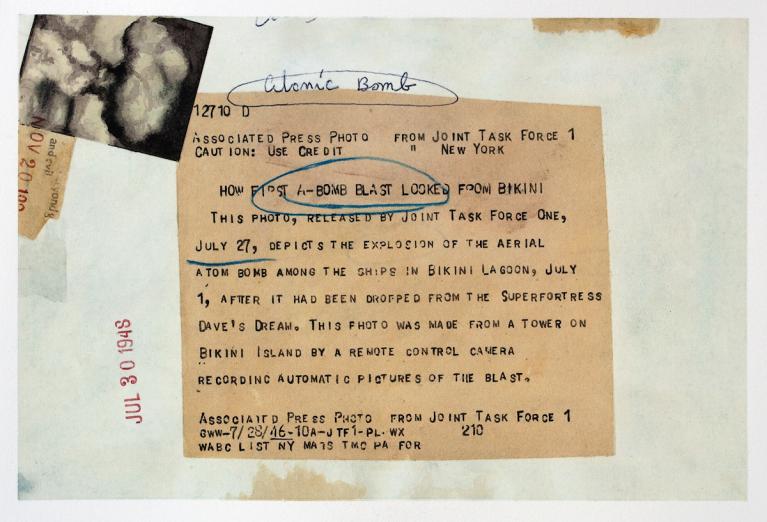 Atomic Bomb
12710 D
ASSOCIATED PRESS PHOTO FROM JOINT TASK FORCE 1
CAUTION: USE CREDIT " NEW YORK
HOW FIRST A-BOMB BLAST LOOKED FROM BIKINI
THIS PHOTO, RELEASED BY JOINT TASK FORCE ONE,
JULY 27, DEPICTS THE EXPLOSION OF THE AERIAL
ATOM BOMB AMONG THE SHIPS IN BIKINI LAGOON, JULY
1, AFTER IT HAD BEEN DROPPED FROM THE SUPERFORTRESS
DAVE'S DREAM. THIS PHOTO WAS MADE FROM A TOWER ON
BIKINI ISLAND BY A REMOTE CONTROL CAMERA
RECORDING AUTOMATIC PICTURES OF THE BLAST.
ASSOCIATED PRESS PHOTO FROM JOINT TASK FORCE 1
GWW-7/28/46-10A-JTF1-PL-WX 210
WABC LIST NY MATS TMC PA FOR
NOV 20
and evil
JUL 30 1946